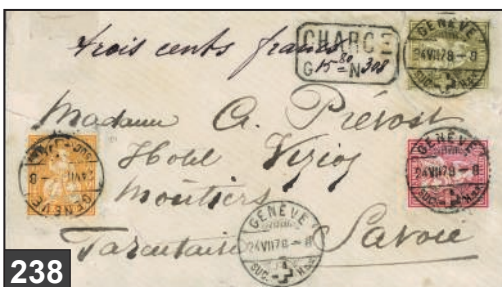 trois cents francs
CHARGÉ
G 15 80 N 308
GENÈVE
24 VII 78 - 8
SUC.
Madame A. Prévost
Hotel
Moûtiers
Tarentaise Savoie
GENÈVE
24 VII 78 - 8
SUC.
GENÈVE
24 VII 78 - 8
SUC.
GENÈVE
VII - 8
238